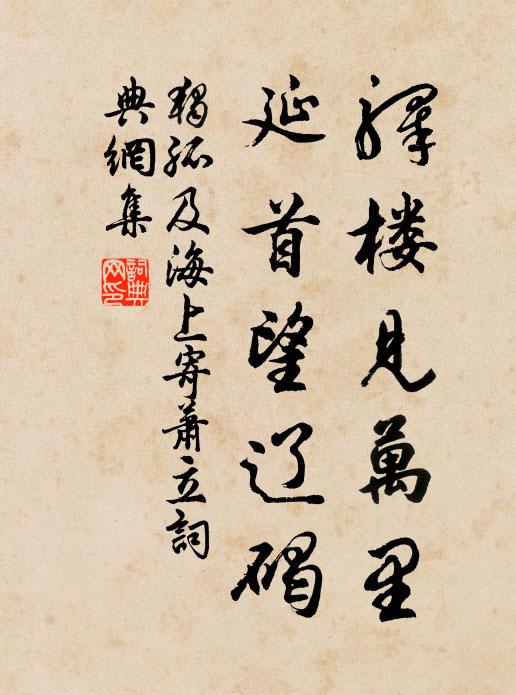 驛楼見萬里
延首望辽碣
獨孤及海上寄蕭立詞
典網集
詞典网印